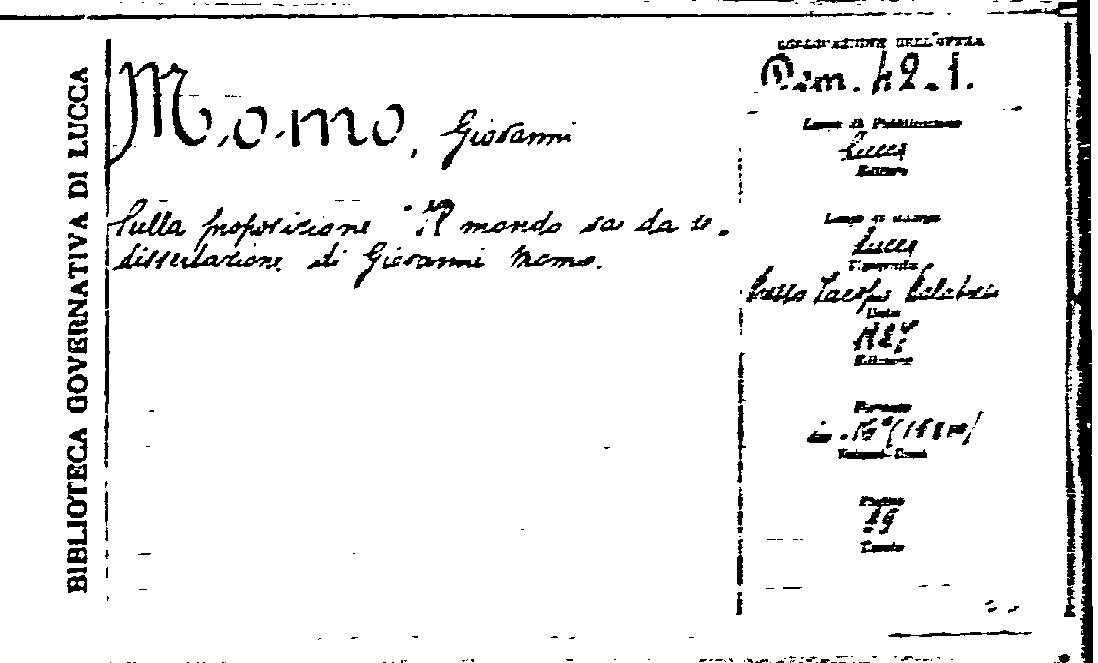 BIBLIOTECA GOVERNATIVA DI LUCCA
Momo, Giovanni
Sulla proposizione "Il mondo sa da se"
dissertazione di Giovanni Momo.
COLLOCAZIONE DELL'OPERA
42.1.
Luogo di Pubblicazione
Lucca
Editore
Luogo di stampa
Lucca
Tipografia
Data
Edizione
Formato
Volumi
Pagine